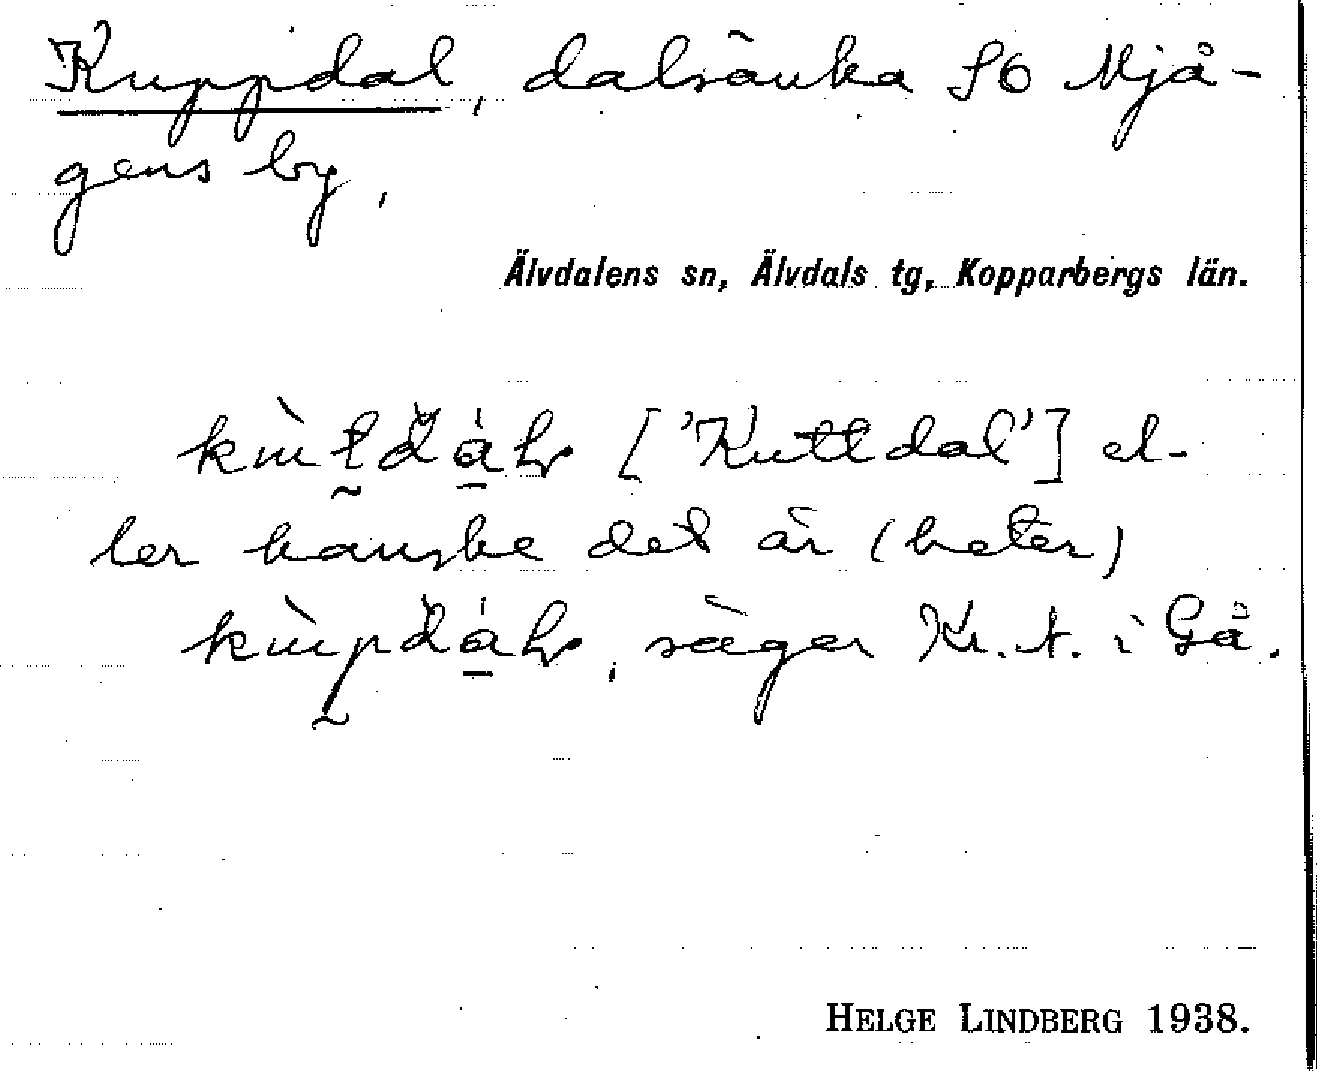 Kuppdal, dalsänka SO Mjå-
gens by,
Älvdalens sn, Älvdals tg, Kopparbergs län.
['Kuttdal'] el-
ler kanske det är (heter)
säger Kr. N. i Gå.
HELGE LINDBERG 1938.